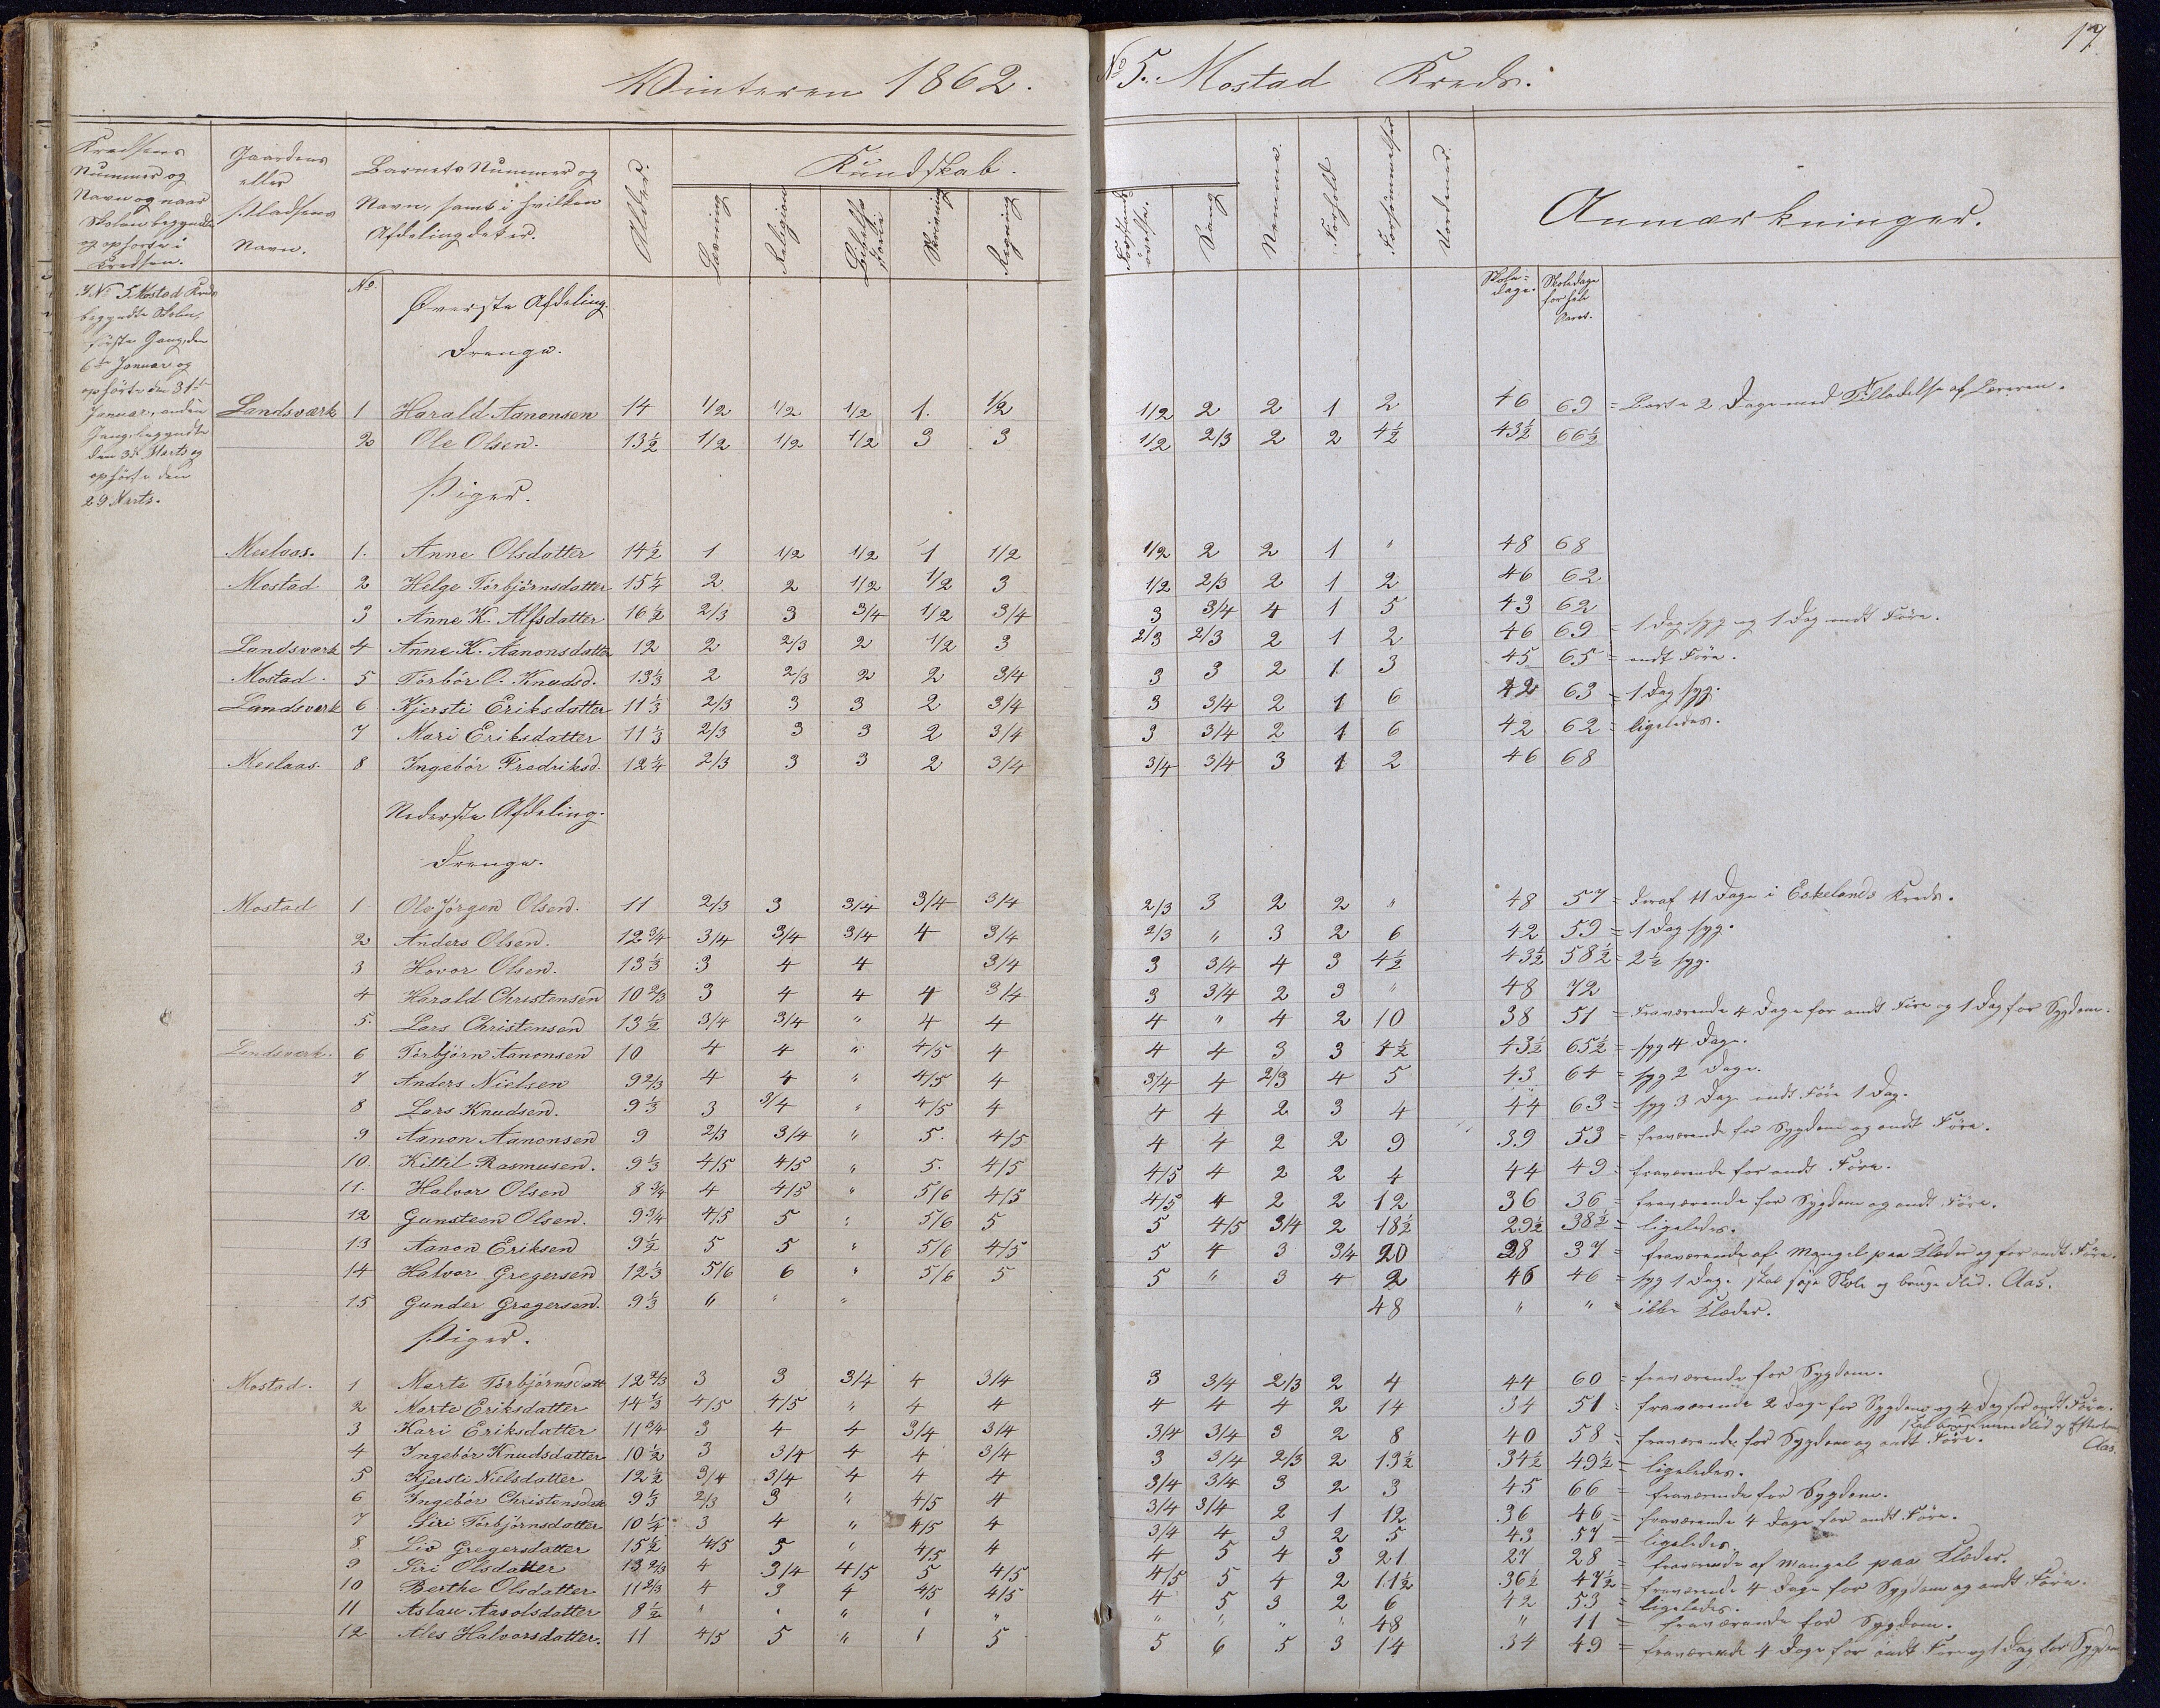 Vinteren 1862.
No 5. Mostad Kreds.
17
Kredsens Nummer og Navn og naar Skolen begyndte og ophørte i Kredsen.
Gaardens eller Pladsens Navn.
Barnets Nummer og Navn, samt i hvilken Afdeling det er.
Alder.
Kundskab.
Læsning
Religion
Bibelhistorie
Skrivning
Regning
Forstandsøvelse.
Sang
Nemme.
Forhold
Forsømmelser
Anmærkninger.
I No 5 Mostad Kreds begyndte Skolen, første Gang, den 6te Januar og ophørte den 31te Januar, anden Gang, begyndte den 3die Marts og ophørte den 29 Marts.
No
Skoledage.
Skoledage for hele Aaret.
Øverste Afdeling.
Drenge.
Landsværk 1 Harald Aanonsen 14 1/2 1/2 1/2 1. 1/2 1/2 2 2 1 2 46 69 = Borte 2 Dage med Tilladelse af Læreren.
2 Ole Olsen. 13½ 1/2 1/2 1/2 3 3 1/2 2/3 2 2 4½ 43½ 66½
Piger.
Meelaas. 1. Anne Olsdatter 14½ 1 1/2 1/2 1 1/2 1/2 2 2 1 " 48 68
Mostad 2 Helge Torbjørnsdatter 15¼ 2 2 1/2 1/2 3 1/2 2/3 2 1 2 46 62
3 Anne K. Alfsdatter 16½ 2/3 3 3/4 1/2 3/4 3 3/4 4 1 5 43 62
Landsværk 4 Anne K. Aanonsdatter 12 2 2/3 2 1/2 3 2/3 2/3 2 1 2 46 69 = 1 Dag syg og 1 Dag ondt Føre.
Mostad. 5 Torbór O. Knudsd. 13⅓ 2 2/3 2 2 3/4 3 3 2 1 3 45 65 = ondt Føre.
Landsværk 6 Kjersti Eriksdatter 11⅓ 2/3 3 3 2 3/4 3 3/4 2 1 6 42 63 = 1 Dag syg.
7 Mari Eriksdatter 11⅓ 2/3 3 3 2 3/4 3 3/4 2 1 6 42 62 = ligeledes.
Meelaas. 8 Ingebór Fredriksd. 12¼ 2/3 3 3 2 3/4 3/4 3/4 3 1 2 46 68
Nederste Afdeling.
Drenge.
Mostad 1 Ole Jørgen Olsen. 11 2/3 3 3/4 3/4 3/4 2/3 3 2 2 " 48 57 = deraf 11 Dage i Eskelands Kreds.
2 Anders Olsen. 12¾ 3/4 3/4 3/4 4 3/4 2/3 " 3 2 6 42 59 = 1 Dag syg.
3 Hovor Olsen. 13⅓ 3 4 4 3/4 3 3/4 4 3 4½ 43½ 58½ = 2½ syg.
4 Harald Christensen 10⅔ 3 4 4 4 3/4 3 3/4 2 3 " 48 72
5. Lars Christensen 13½ 3/4 3/4 " 4 4 4 " 4 2 10 38 51 = Fraværende 4 Dage for ondt Føre og 1 Dag for Sygdom.
Landsværk. 6 Torbjørn Aanonsen 10 4 4 " 4/5 4 4 4 3 3 4½ 43½ 65½ = syg 4 Dage.
7 Anders Nielsen 9⅔ 4 4 " 4/5 4 3/4 4 2/3 4 5 43 64 = syg 2 Dage.
8 Lars Knudsen. 9⅓ 3 3/4 " 4/5 4 4 4 2 3 4 44 63 = syg 3 Dage ondt Føre 1 Dag.
9 Aanon Aanonsen 9 2/3 3/4 " 5. 4/5 4 4 2 2 9 39 53 = fraværende for Sygdom og ondt Føre.
10. Kittil Rasmusen. 9⅓ 4/5 4/5 " 5. 4/5 4/5 4 2 2 4 44 49 = fraværende for ondt Føre.
11. Halvor Olsen 8¾ 4 4/5 " 5/6 4/5 4/5 4 2 2 12 36 36 = fraværende for Sygdom og ondt Føre.
12 Gunsteen Olsen. 9¾ 4/5 5 " 5/6 5 5 4/5 3/4 2 18½ 29½ 38½ = ligeledes.
13 Aanon Eriksen 9½ 5 5 " 5/6 4/5 5 4 3 3/4 20 28 37 = fraværende af Mangel paa Klæder og for ondt Føre.
14 Halvor Gregersen 12⅓ 5/6 6 " 5/6 5 5 " 3 4 2 46 46 = syg 1 Dag. skal søge Skole og bruge Flid. Aas.
15 Gunder Gregersen. 9⅓ " " " 48 " " = ikke Klæder.
Piger.
Mostad. 1 Marte Torbjørnsdatt 12⅔ 3 3 3/4 4 3/4 3 3/4 2/3 2 4 44 60 = fraværende for Sygdom.
2 Marte Eriksdatter 14⅓ 4/5 4/5 " 4 4 4 4 4 2 14 34 51 = fraværende 2 Dage for Sygdom og 4 Dag for ondt Føre.
skal bruge mere Flid og Aas.
3 Kari Eriksdatter 11¾ 3 4 4 3/4 3/4 3/4 3/4 3 2 8 40 58 = fraværende for Sygdom og ondt Føre.
4 Ingebór Knudsdatter 10½ 3 3/4 4 4 3/4 3 3/4 2/3 2 13½ 34½ 49½ = ligeledes.
5 Kjersti Nielsdatter 12½ 3/4 3/4 4 4 4 3/4 3/4 3 2 3 45 66 = fraværende for Sygdom.
6 Ingebór Christensdatt 9⅓ 2/3 3 " 4/5 4 3/4 3/4 2 1 12 36 46 = fraværende 4 Dage for ondt Føre.
7 Siri Torbjørnsdatter 10¼ 3 4 " 4/5 4 3/4 4 3 2 5 43 57 = ligeledes.
8 Liv Gregersdatter 15½ 4/5 5 " 4/5 4 4 5 4 3 21 27 28 = fraværende af Mangel paa Klæder.
9 Siri Olsdatter 13⅔ 4 3/4 4/5 5 4/5 4/5 5 4 2 11½ 36½ 47½ = fraværende 4 Dage for Sygdom og ondt Føre.
10 Berthe Olsdatter 11⅔ 4 3 4 4/5 4/5 4 5 3 2 6 42 53 = ligeledes.
11 Aslau Aasolsdatter 8½ " " " " " " " " " 48 " 11 = fraværende for Sygdom.
12 Ales Halvorsdatter. 11 4/5 5 " " 5 5 6 5 3 14 34 49 = fraværende 4 Dage for ondt Føre og 1 Dag for Sygdom